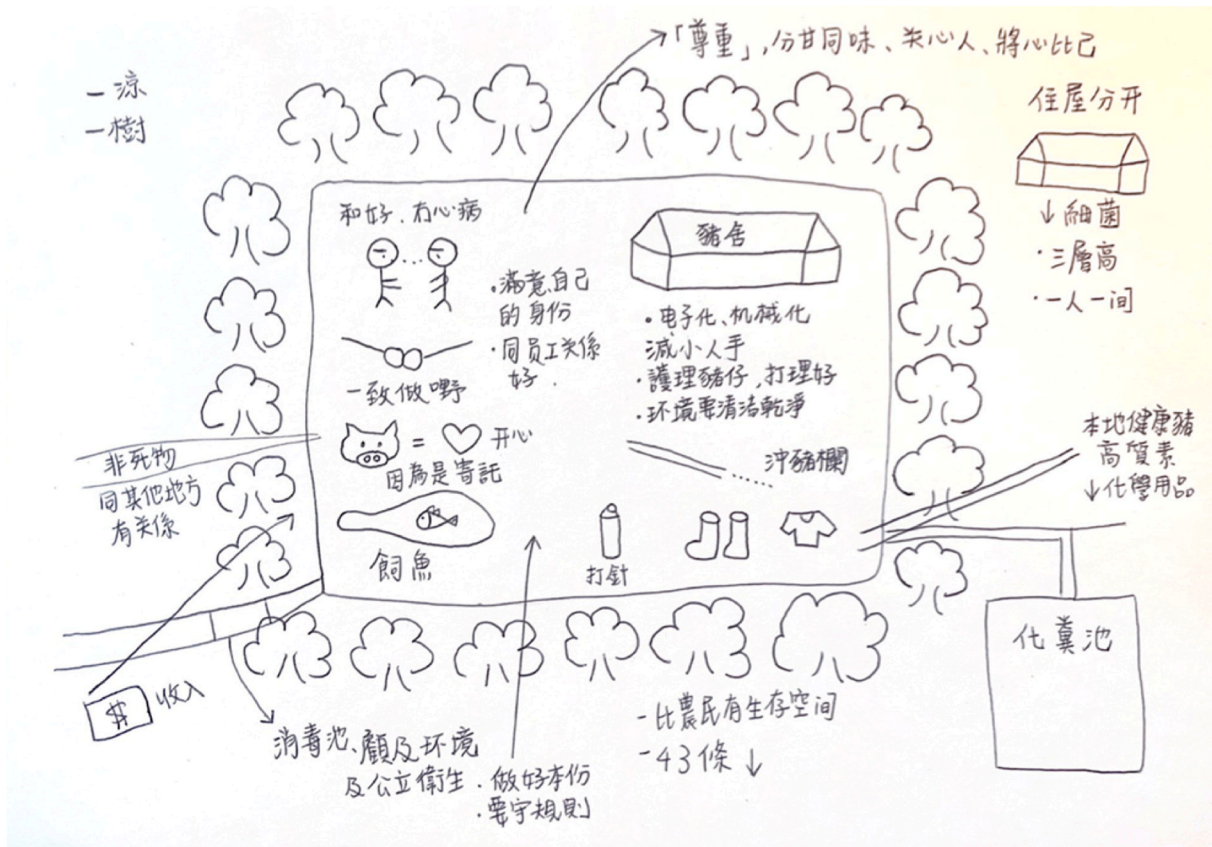 「尊重」,分甘同味、关心人、將心比己
- 涼
- 樹
住屋分开
↓細菌
·三層高
·一人一间
和好、冇心病
·滿意自己
的身份
·同员工关係
好.
一致做嘢
= 开心
因為是寄託
飼魚
豬舍
·电子化、机械化
減小人手
·護理豬仔,打理好
·环境要清洁乾淨
沖豬欄
打針
非死物
同其他地方
有关係
本地健康豬
高質素
↓化學用品
化糞池
$ 收入
消毒池、顧及环境
及公立衛生
·做好本份
·要守規則
- 比農民有生存空间
- 43條↓